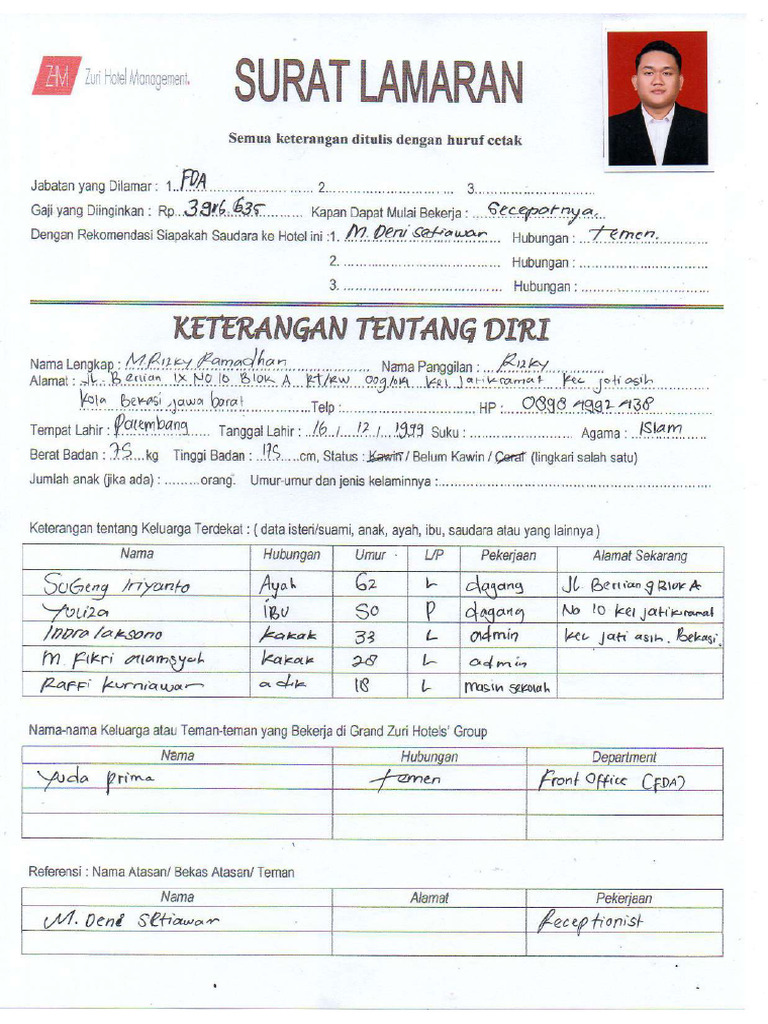 ZHM Zuri Hotel Management.
SURAT LAMARAN
Semua keterangan ditulis dengan huruf cetak
Jabatan yang Dilamar : 1. FDA 2. 3.
Gaji yang Diinginkan : Rp. 3.916.635 Kapan Dapat Mulai Bekerja : Secepatnya.
Dengan Rekomendasi Siapakah Saudara ke Hotel ini :1. M. Deni Setiawan Hubungan : temen.
2. Hubungan :
3. Hubungan :
KETERANGAN TENTANG DIRI
Nama Lengkap : M.Rizky Ramadhan Nama Panggilan : Rizky
Alamat : JL. Berlian IX NO 10 Blok A RT/RW Kel jatikramat kec jatiasih
Kota Bekasi jawa barat Telp : HP : 0898 4992 438
Tempat Lahir : Palembang Tanggal Lahir : 16 / 12 / 1999 Suku : Agama : Islam
Berat Badan : 75 kg Tinggi Badan : 175 cm, Status : Kawin / Belum Kawin / Cerai (lingkari salah satu)
Jumlah anak (jika ada) : orang. Umur-umur dan jenis kelaminnya :
Keterangan tentang Keluarga Terdekat : ( data isteri/suami, anak, ayah, ibu, saudara atau yang lainnya )
Nama Hubungan Umur L/P Pekerjaan Alamat Sekarang
SuGeng Iriyanto Ayah 62 L dagang JL Berlian 9 Blok A
Yuliza IBU 50 P dagang No 10 kel jatikramat
Indra laksono kakak 33 L admin kec jati asih. Bekasi.
M. Fikri alamsyah kakak 28 L admin
Raffi kurniawan adik 18 L masin sekolah
Nama-nama Keluarga atau Teman-teman yang Bekerja di Grand Zuri Hotels' Group
Nama Hubungan Department
Yuda prima temen Front Office (FDA)
Referensi : Nama Atasan/ Bekas Atasan/ Teman
Nama Alamat Pekerjaan
M. Deni Setiawan Receptionist